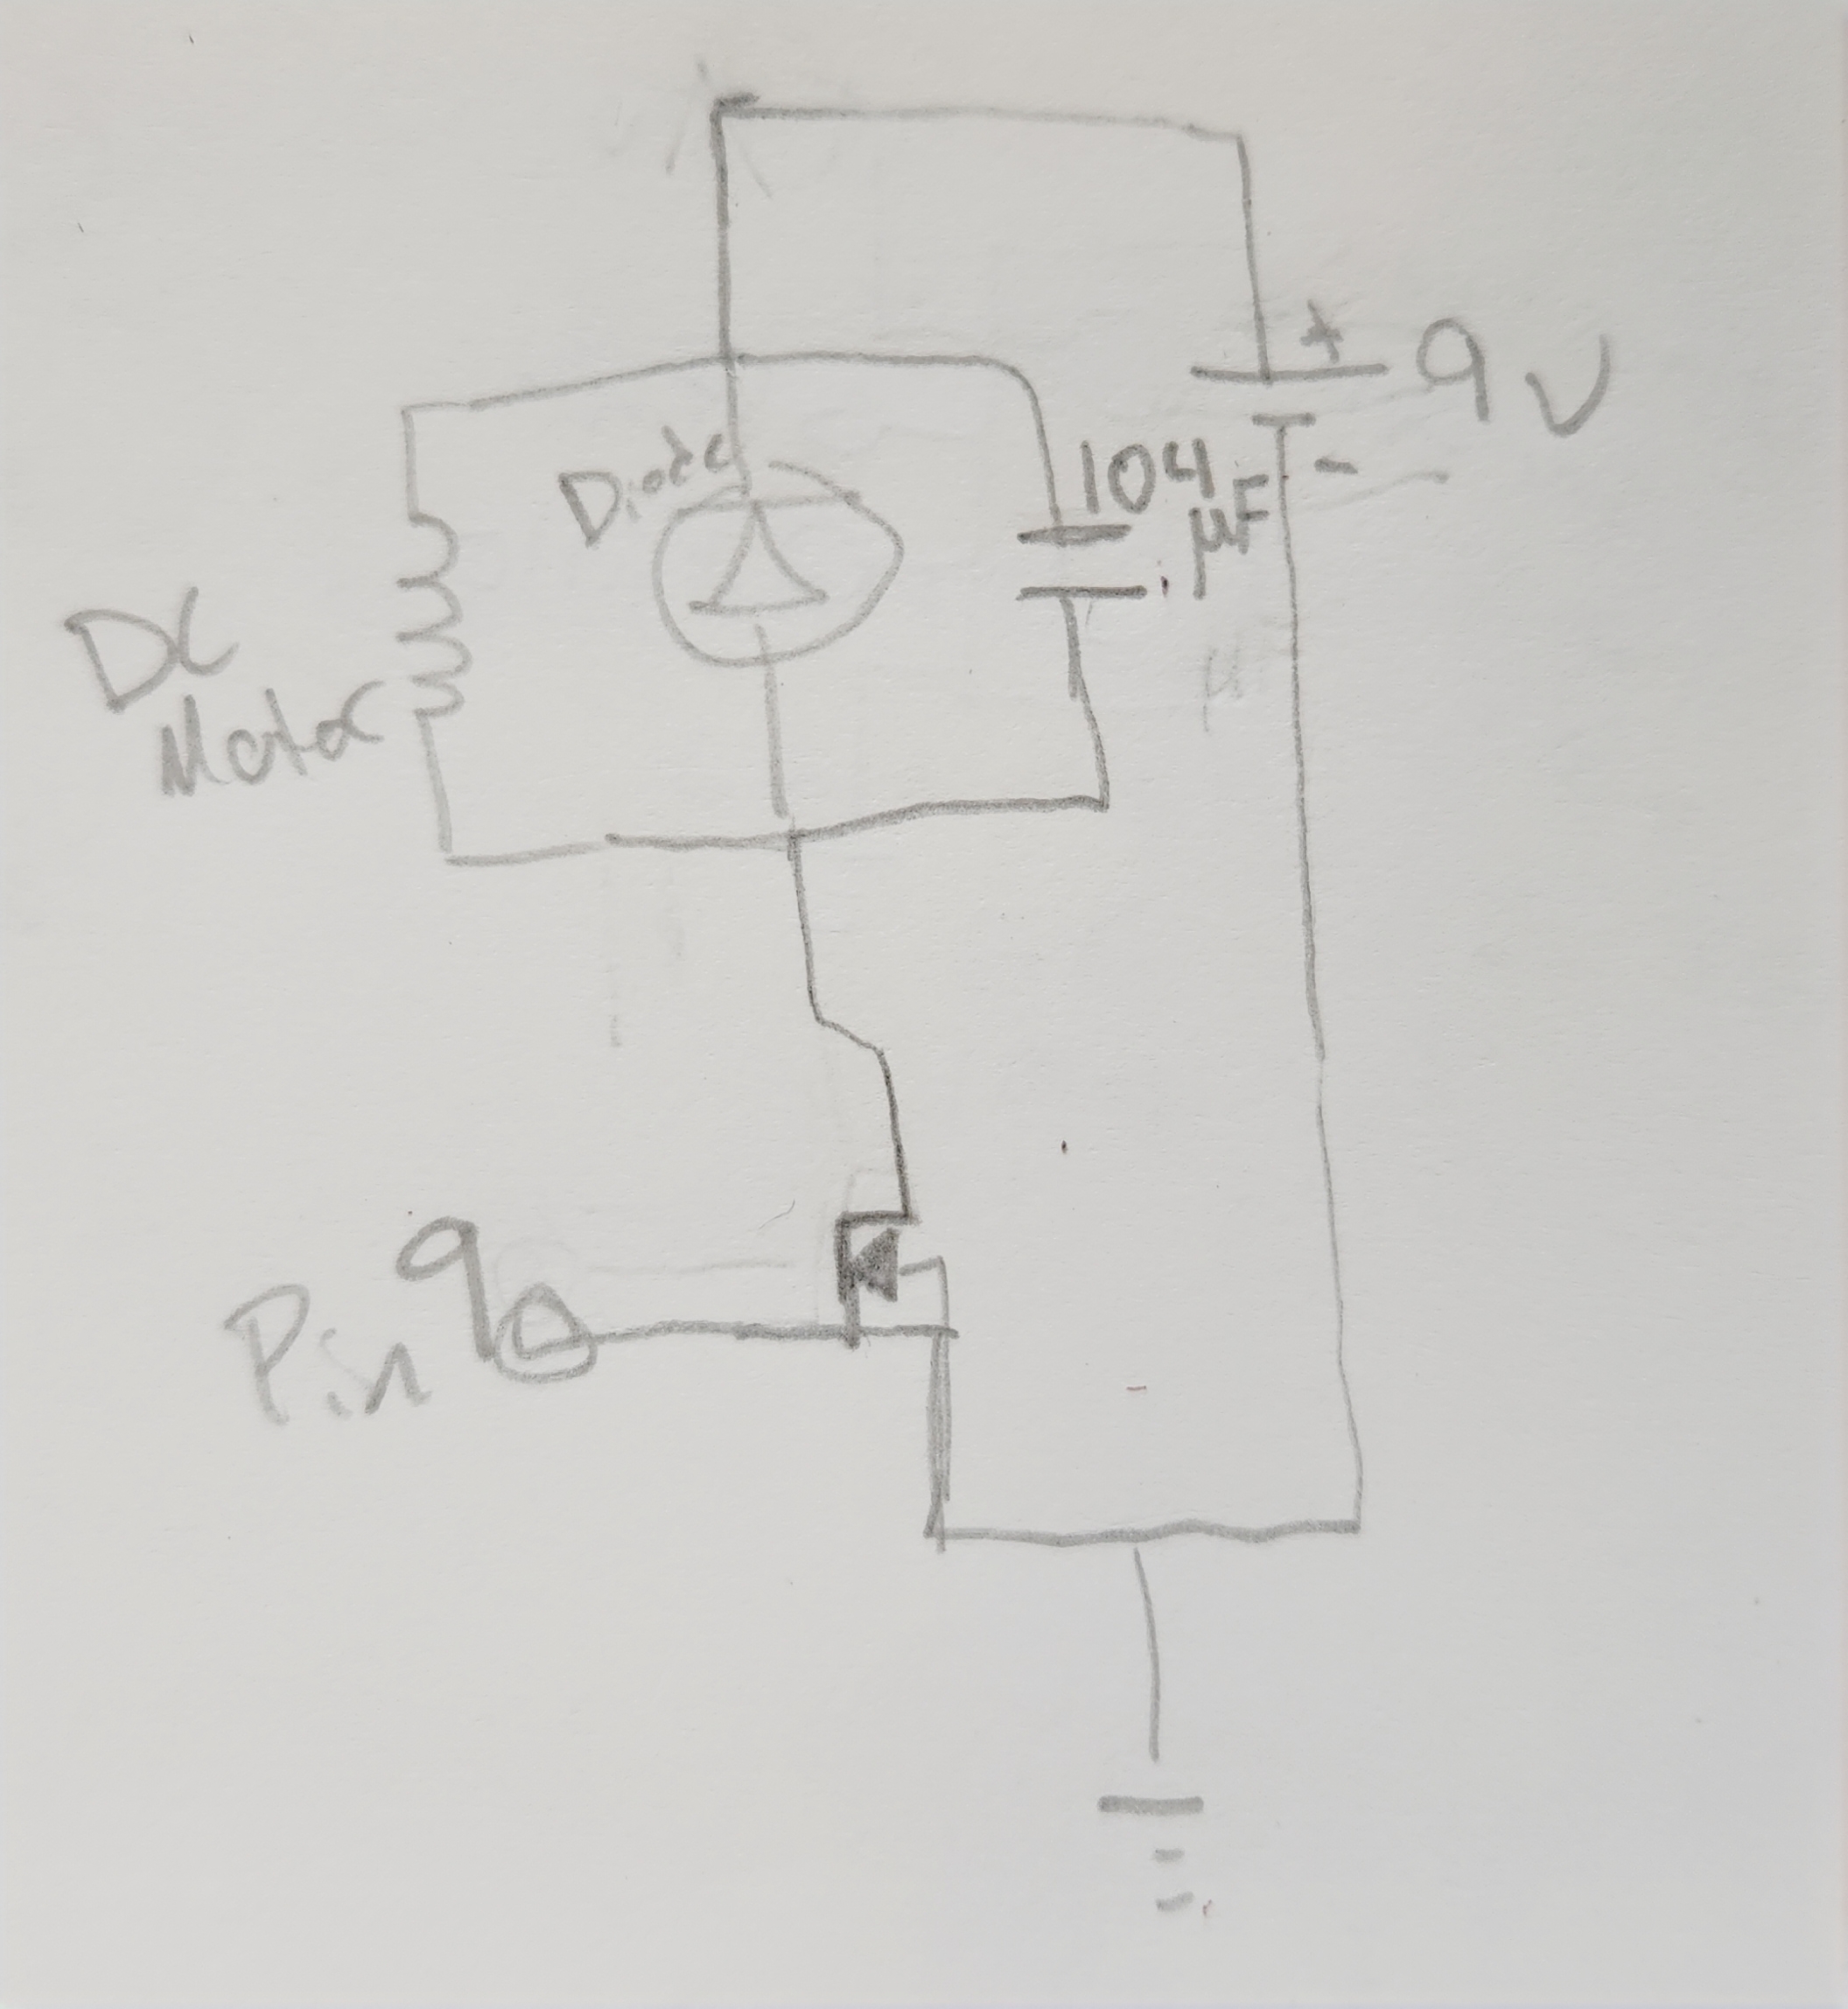 + 9V
-
Diode
104
µF
DC
Motor
Pin 9